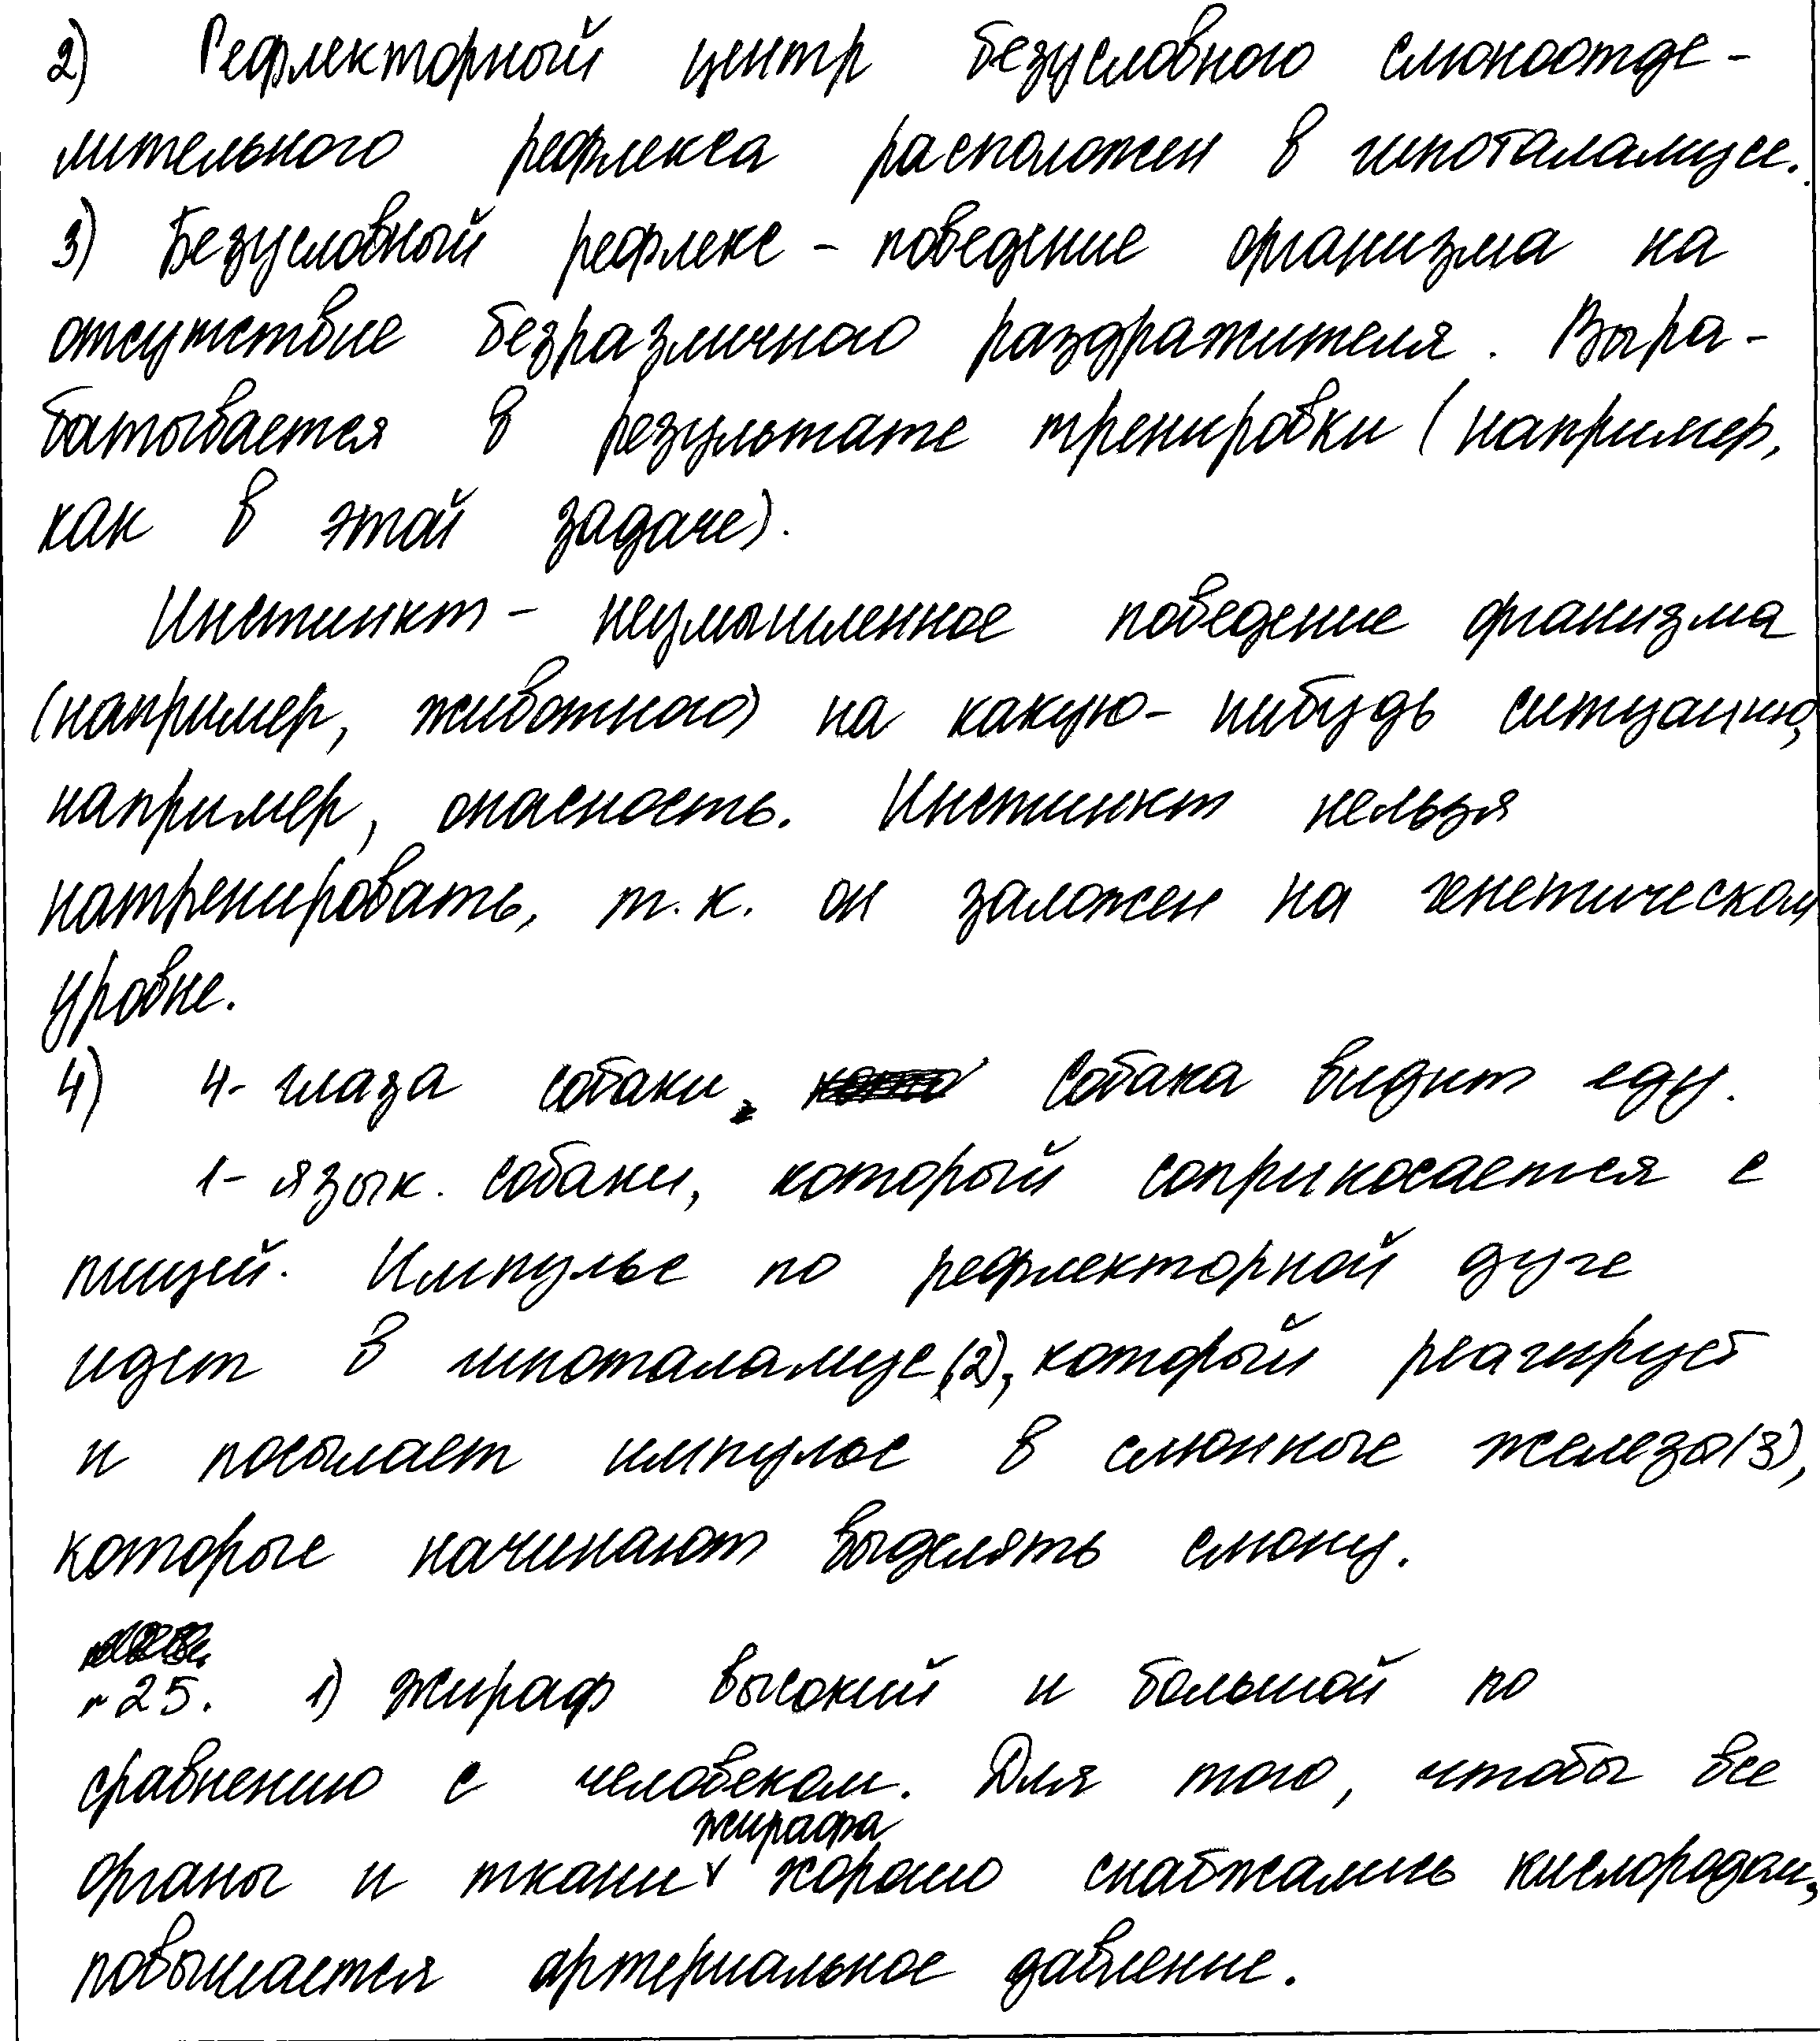 2) Рефлекторный центр безусловного слюноотде-
лительного рефлекса расположен в гипоталамусе.
3) Безусловный рефлекс - поведение организма на
отсутствие безразличного раздражителя. Выра-
батывается в результате тренировки (например,
как в этой задаче).
Инстинкт - неумышленное поведение организма
(например, животного) на какую-нибудь ситуацию,
например, опасность. Инстинкт нельзя
натренировать, т.к. он заложен на генетическом
уровне.
4) 4- глаза собаки. Собака видит еду.
1- язык собаки, который соприкосается с
пищей. Импульс по рефлекторной дуге
идет в гипоталамус (2), который реагирует
и посылает импульс в слюнные железы (3),
которые начинают выделять слюну.
№25. 1) Жираф высокий и большой по
сравнению с человеком. Для того, чтобы все
жирафа
органы и ткани хорошо снабжались кислородом,
повышается артериальное давление.